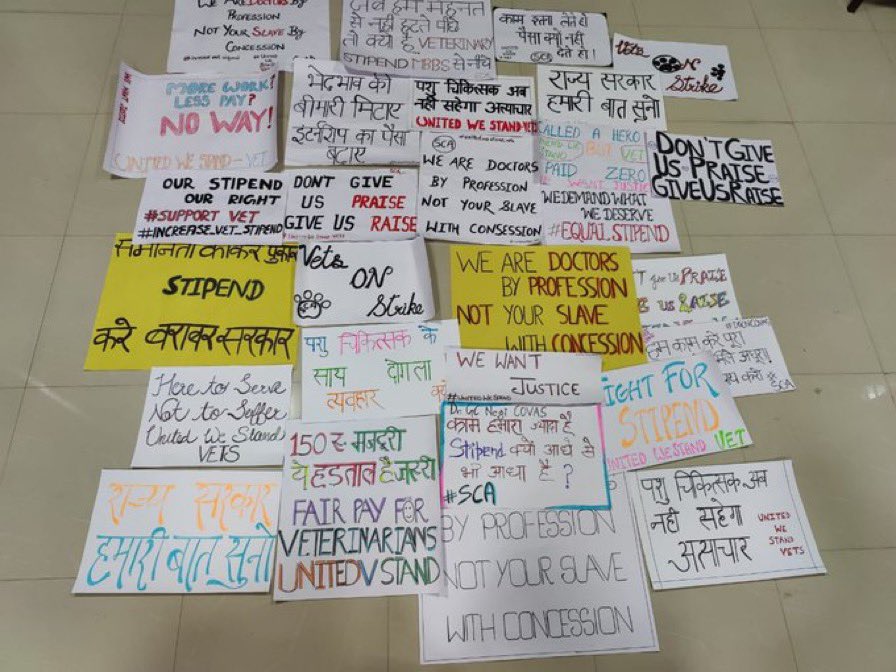 WE ARE DOCTORS BY
PROFESSION
NOT YOUR SLAVE BY
CONCESSION
जब हम मेहनत
से नहीं हटते पीछे
तो क्यों है VETERINARY
STIPEND MBBS से नीचे
काम इतना लेते हो
पैसा क्यों नहीं
देते हो!
SCA
Vets
ON
Strike
MORE WORK!
LESS PAY?
NO WAY!
UNITED WE STAND - VET
भेदभाव की
बीमारी मिटाए
इंटर्नशिप का पैसा
बढ़ाए
पशु चिकित्सक अब
नहीं सहेगा अत्याचार
UNITED WE STAND-VET
राज्य सरकार
हमारी बात सुनो
SCA
WE ARE DOCTORS
BY PROFESSION
NOT YOUR SLAVE
WITH CONSESSION
CALLED A HERO
BUT
PAID ZERO
WE WANT JUSTICE
WE DEMAND WHAT
WE DESERVE
#EQUAL STIPEND
DON'T GIVE
US PRAISE
GIVE US RAISE
OUR STIPEND
OUR RIGHT
#SUPPORT VET
#INCREASE_VET_STIPEND
DONT GIVE
US PRAISE
GIVE US RAISE
समानता का कर पुकार
STIPEND
करे बराबर सरकार
Vets
ON
Strike
WE ARE DOCTORS
BY PROFESSION
NOT YOUR SLAVE
WITH CONCESSION
Give Us PRAISE
US RAISE
हम काम करे पूरा
SCA
Here to Serve
Not to Suffer
United We Stand
VETS
पशु चिकित्सक के
साथ दोगला
व्यवहार
WE WANT
JUSTICE
#UNITED WE STAND
IGHT FOR
STIPEND
UNITED WE STAND VET
Dr. GC Negi COVAS
काम हमारा ज्यादा है
Stipend क्यों आधे से
भी आधा है ?
#SCA
150 रु मजदूरी
ये हड़ताल है जरूरी
FAIR PAY FOR
VETERINARIANS
UNITED V STAND
राज्य सरकार
हमारी बात सुनो
BY PROFESSION
NOT YOUR SLAVE
WITH CONCESSION
पशु चिकित्सक अब
नहीं सहेगा
अत्याचार
UNITED
WE
STAND
VETS